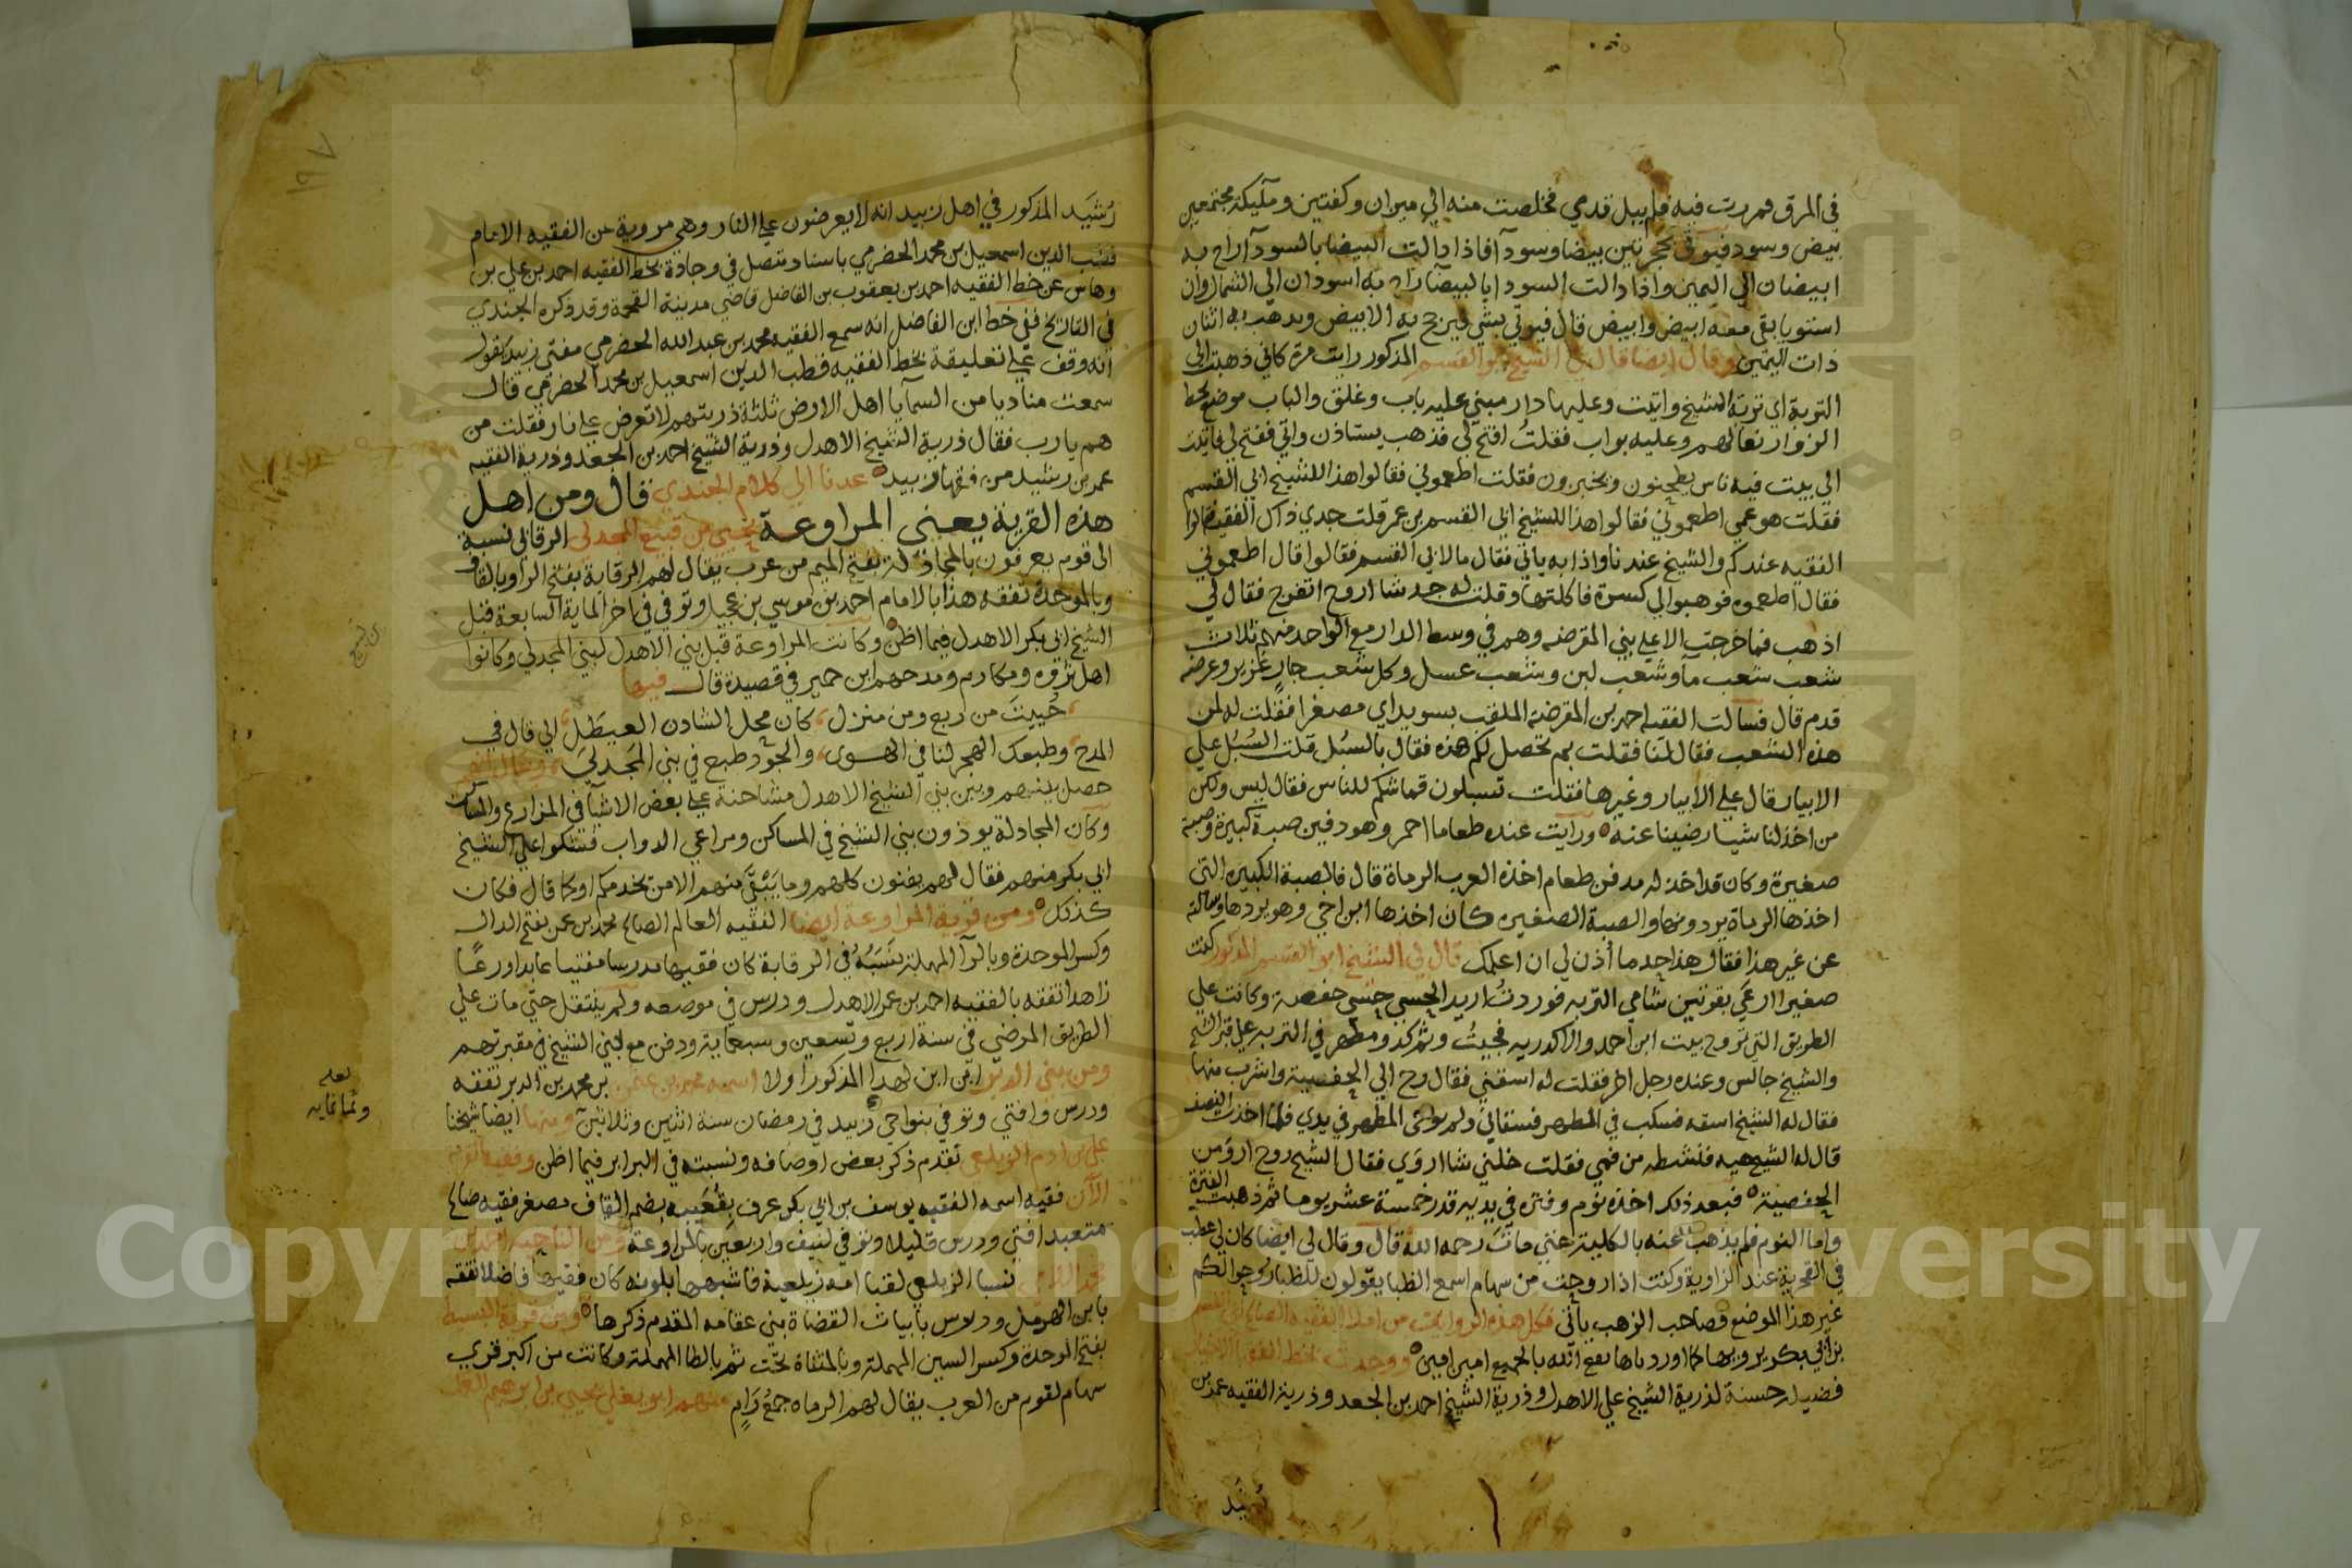 في المرق فمررت فيه فلم يبل قدمي فخلصت منه الي ميزان وكفتين ومليكة مجتمعين
بيض وسود فيوتى بحجرتين بيضا وسودآ فاذا دالت البيضا بالسودآ راح به
ابيضان الي اليمين واذا دالت السودا بالبيضآ راح به اسودان الي الشمال وان
استويا بقي معه ابيض وابيض قال فيوتي بشي ليرجح به الابيض ويذهب به اثنان
ذات اليمين وقال ايضا قال لي الشيخ ابو القسم المذكور رايت مرة كاني ذهبت الي
التربة اي تربة الشيخ واتيت وعليها دار مبني عليه باب وغلق والباب موضع محط
الزوار نعالهم وعليه بواب فقلت افتح لي فذهب يستاذن واتي ففتح لي فاتيت
الي بيت فيه ناس يطبخون ويخبزون فقلت اطعموني فقالوا هذا للشيخ ابي القسم
فقلت هو عمي اطعموني فقالوا هذا للشيخ ابي القسم بن عمر قلت جدي ذاك الفقيه قالوا
الفقيه عندكم والشيخ عندنا واذا به ياتي فقال مالابي القسم فقالوا قال اطعموني
فقال اطعموه فوهبوا لي كسرة فاكلتها وقلت له جد شا اروح اتفرج فقال لي
اذهب فما خرجت الا علي بني المقرضه وهم في وسط الدار مع الواحد منهم ثلاث
شعب شعب مآ وشعب لبن وشعب عسل وكل شعب جار غزير وعرضه
قدم قال فسالت الفقيه احمد بن المقرضه الملقب بسويد اي مصغرا فقلت له لمن
هذه الشعب فقال لنا فقلت بم تحصل لكم هذه فقال بالسبُل قلت السُبُل علي
الابيار قال علي الابيار وغيرها فقلت تسبلون قماشكم للناس فقال ليس ولكن
من اخذ لنا شيا رضينا عنه ورايت عنده طعاما احمر وهو دفين صبة كبيرة وصبة
صغيرة وكان قد اخذ له مدفن طعام اخذه العرب الرماة قال فالصبة الكبيره التي
اخذها الرماة يردونها والصبة الصغيره كان اخذها ابن اخي وهو يردها وسالته
عن غير هذا فقال هذا حد ما أذن لي ان اعلمك قال لي الشيخ ابو القسم المذكور كنت
صغيرا ارعي بقرتين شامي التربه فوردتُ اريد الحسي حسي حفصة وكانت علي
الطريق التي تروح بيت ابن احمد والاكدريه فجيتُ وثم ركد ومطهر في التربه علي قبر الشيخ
والشيخ جالس وعنده رجل اخر فقلت له اسقني فقال رح الي الحفصية واشرب منها
فقال له الشيخ اسقه فسكب في المطهر فسقاني ولم يوتى المطهر في يدي فلما اخذت النصف
قال له الشيخ هيه فنشطه من فمي فقلت خلني شا اروي فقال الشيخ روح اروَ من
الحفصية فبعد ذلك اخذه نوم وفتره في يديه قدر خمسة عشر يوما ثم ذهبت الفترة
واما النوم فلم يذهب عنه بالكلية حتي مات رحمه الله قال وقال لي ايضا كان لي
في القرية عند الزاوية وكنت اذا روحت من سهام اسمع الظبا يقولون للظبا روحوا لكم
غير هذا الموضع فصاحب الزهب ياتي فكل هذه الروايات من املا الفقيه الصالح ابي القسم
بن ابي بكر يرويها كما اوردناها نفع الله بالجميع امين امين ووجدت بخط الفقيه الاخيار
فضيلة حسنة لذرية الشيخ علي الاهدل وذرية الشيخ احمد بن الجعد وذرية الفقيه عمر بن
رشيد
رُشيَد المذكور في اهل زبيد انه لا يعرضون علي النار وهي مروية عن الفقيه الامام
قطب الدين اسمعيل بن محمد الحضرمي باسناد متصل في وجادة بخط الفقيه احمد بن علي بن
وهاس عن خط الفقيه احمد بن يعقوب بن الفاضل قاضي مدينة القحمة وقد ذكره الجندي
في التاريخ ففي خط ابن الفاضل انه سمع الفقيه محمد بن عبد الله الحضرمي مفتي زبيد يقول
انه وقف علي تعليقة بخط الفقيه قطب الدين اسمعيل بن محمد الحضرمي قال
سمعت مناديا من السمآ يا اهل الارض ثلثة ذريتهم لا تعرض علي نار فقلت من
هم يا رب فقال ذرية الشيخ الاهدل وذرية الشيخ احمد بن الجعد وذرية الفقيه
عمر بن رشيد من فقها زبيد عدنا الي كلام الجندي قال ومن اهل
هذه القرية يعني المراوعة يحيي بن المجدلي الرقابي نسبة
الى قوم يعرفون بالمجادلة بفتح الميم من عرب يقال لهم الرقابة بفتح الرا وبالقاف
وبالموحدة تفقه هذا بالامام احمد بن موسي بن عجيل وتوفي في اخر الماية السابعة قبل
الشيخ ابي بكر الاهدل فيما اظن وكانت المراوعة قبل بني الاهدل لبني المجدلي وكانوا
اهل ثروه ومكارم ومدحهم ابن حمير في قصيدة قال فيها
حُييتَ من ربع ومن منزل كان محل الشادن العيطَل الي قال في
المدح وطبعك الهجر لنا في الهوى والجود طبع في بني المَجدلي
حصل بينهم وبين بني الشيخ الاهدل مشاحنة علي بعض الاشيآ في المزارع والمساكن
وكان المجادلة يوذون بني الشيخ في المساكن ومراعي الدواب فشكوا علي الشيخ
ابي بكر منهم فقال لهم يفنون كلهم وما يَبْقَى منهم الا من يخدمكم او كما قال فكان
كذلك ومن قرية المراوعة ايضا الفقيه العالم الصالح محمد بن عمر بفتح الدال
وكسر الموحدة وبالرآ المهملة نسَبَهُ في الرقابة كان فقيها مدرسا مفتيا عابدا ورعًا
زاهدا تفقه بالفقيه احمد بن عمر الاهدل ودرس في موضعه ولم ينتقل حتي مات علي
الطريق المرضي في سنة اربع وتسعين وسبعماية ودفن مع بني الشيخ في مقبرتهم
ومن بني الدبر ابن ابن لهذا المذكور اولا اسمه محمد بن عمر بن محمد بن الدبر تفقه
ودرس وافتي وتوفي بنواحي زبيد في رمضان سنة اثنين وثلاثين ومنها ايضا شيخنا
علي بن ادم الزيلعي تقدم ذكر بعض اوصافه ونسبته في البرابر فيما اظن وفقيه القرية
الآن فقيه اسمه الفقيه يوسف بن ابي بكر عرف بِقُعَيبه بضم القاف مصغر فقيه صالح
متعبد افتي ودرس قليلا وتوفي لنيف واربعين بالمراوعة ومن الناحية احمد بن
نسبا الزيلعي لقبا امه زيلعية فاشبهها بلونه كان فقيها فاضلا تفقه
بابن الهرمل ودرس بابيات القضاة بني عقامه المقدم ذكرها ومن قرية البسيط
بفتح الموحدة وكسر السين المهملة وبالمثناة تحت ثم بالطا المهملة وكانت من اكبر قري
سهام لقوم من العرب يقال لهم الرماه جمعُ رَامٍ منهم ابو يعلي يحيي بن ابرهيم العك
لعله
وثمانمايه